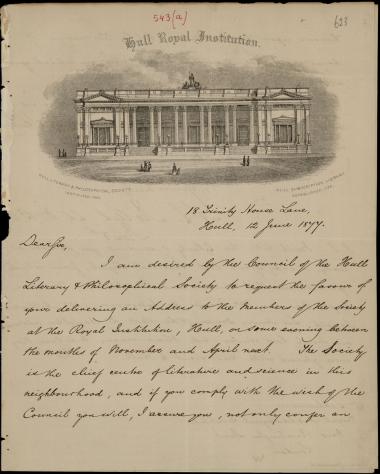 543(a)
623
Hull Royal Institution.
HULL LITERARY & PHILOSOPHICAL SOCIETY
HULL SUBSCRIPTION LIBRARY
18 Trinity House Lane,
Hull, 12 June 1877.
Dear Sir,
I am desired by the Council of the Hull
Literary & Philosophical Society to request the favour of
your delivering an Address to the Members of the Society
at the Royal Institution, Hull, on some evening between
the months of November and April next. The Society
is the chief centre of literature and science in this
neighbourhood, and if you comply with the wish of the
Council you will, I assure you, not only confer an